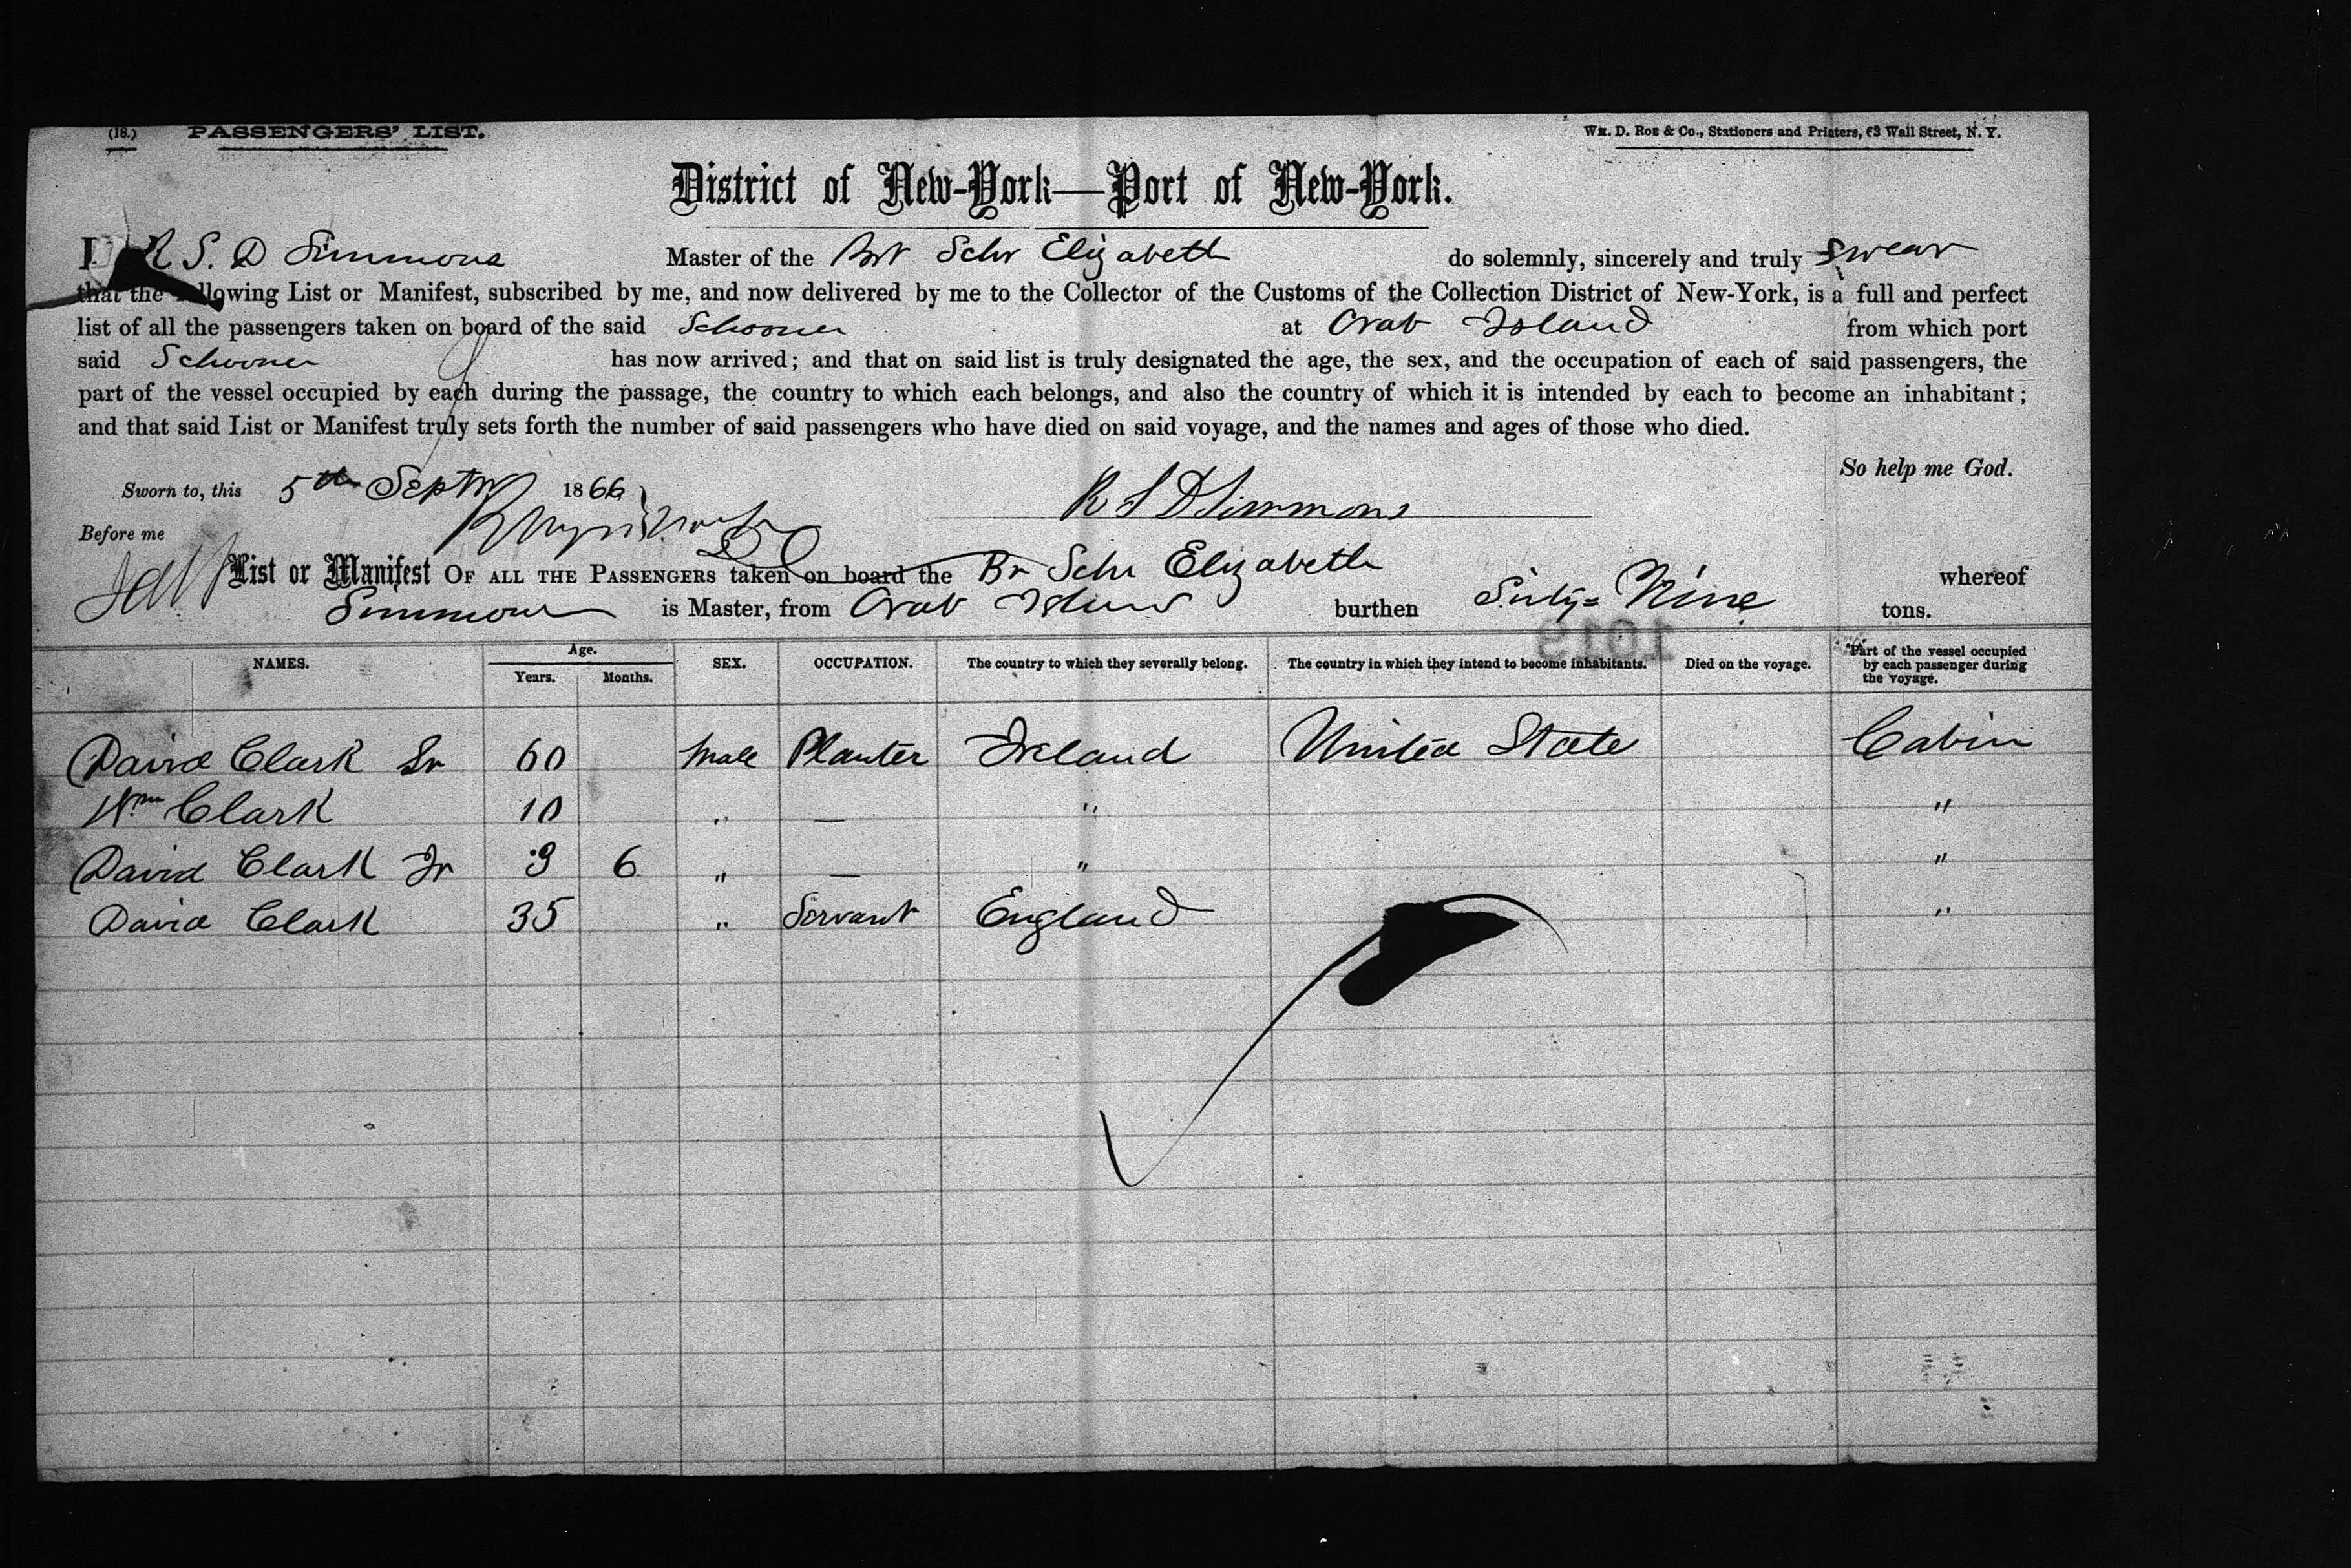 (18.) PASSENGERS' LIST. Wm. D. Roe & Co., Stationers and Printers, 63 Wall Street, N. Y.
District of New-York—Port of New-York.
I R S. D Simmons Master of the Br Schr Elizabeth do solemnly, sincerely and truly swear
that the following List or Manifest, subscribed by me, and now delivered by me to the Collector of the Customs of the Collection District of New-York, is a full and perfect
list of all the passengers taken on board of the said Schooner at Crab Island from which port
said Schooner has now arrived; and that on said list is truly designated the age, the sex, and the occupation of each of said passengers, the
part of the vessel occupied by each during the passage, the country to which each belongs, and also the country of which it is intended by each to become an inhabitant;
and that said List or Manifest truly sets forth the number of said passengers who have died on said voyage, and the names and ages of those who died.
So help me God.
Sworn to, this 5th Septr 1866 R S D Simmons
Before me
List or Manifest OF ALL THE PASSENGERS taken on board the Br Schr Elizabeth whereof
Simmons is Master, from Crab Island burthen Sixty=Nine tons.
1019
NAMES. Age. Years. Months. SEX. OCCUPATION. The country to which they severally belong. The country in which they intend to become inhabitants. Died on the voyage. Part of the vessel occupied by each passenger during the voyage.
David Clark Sr 60 Male Planter Ireland United State Cabin
Wm Clark 10 " — " "
David Clark Jr 3 6 " — " "
David Clark 35 " Servant England "